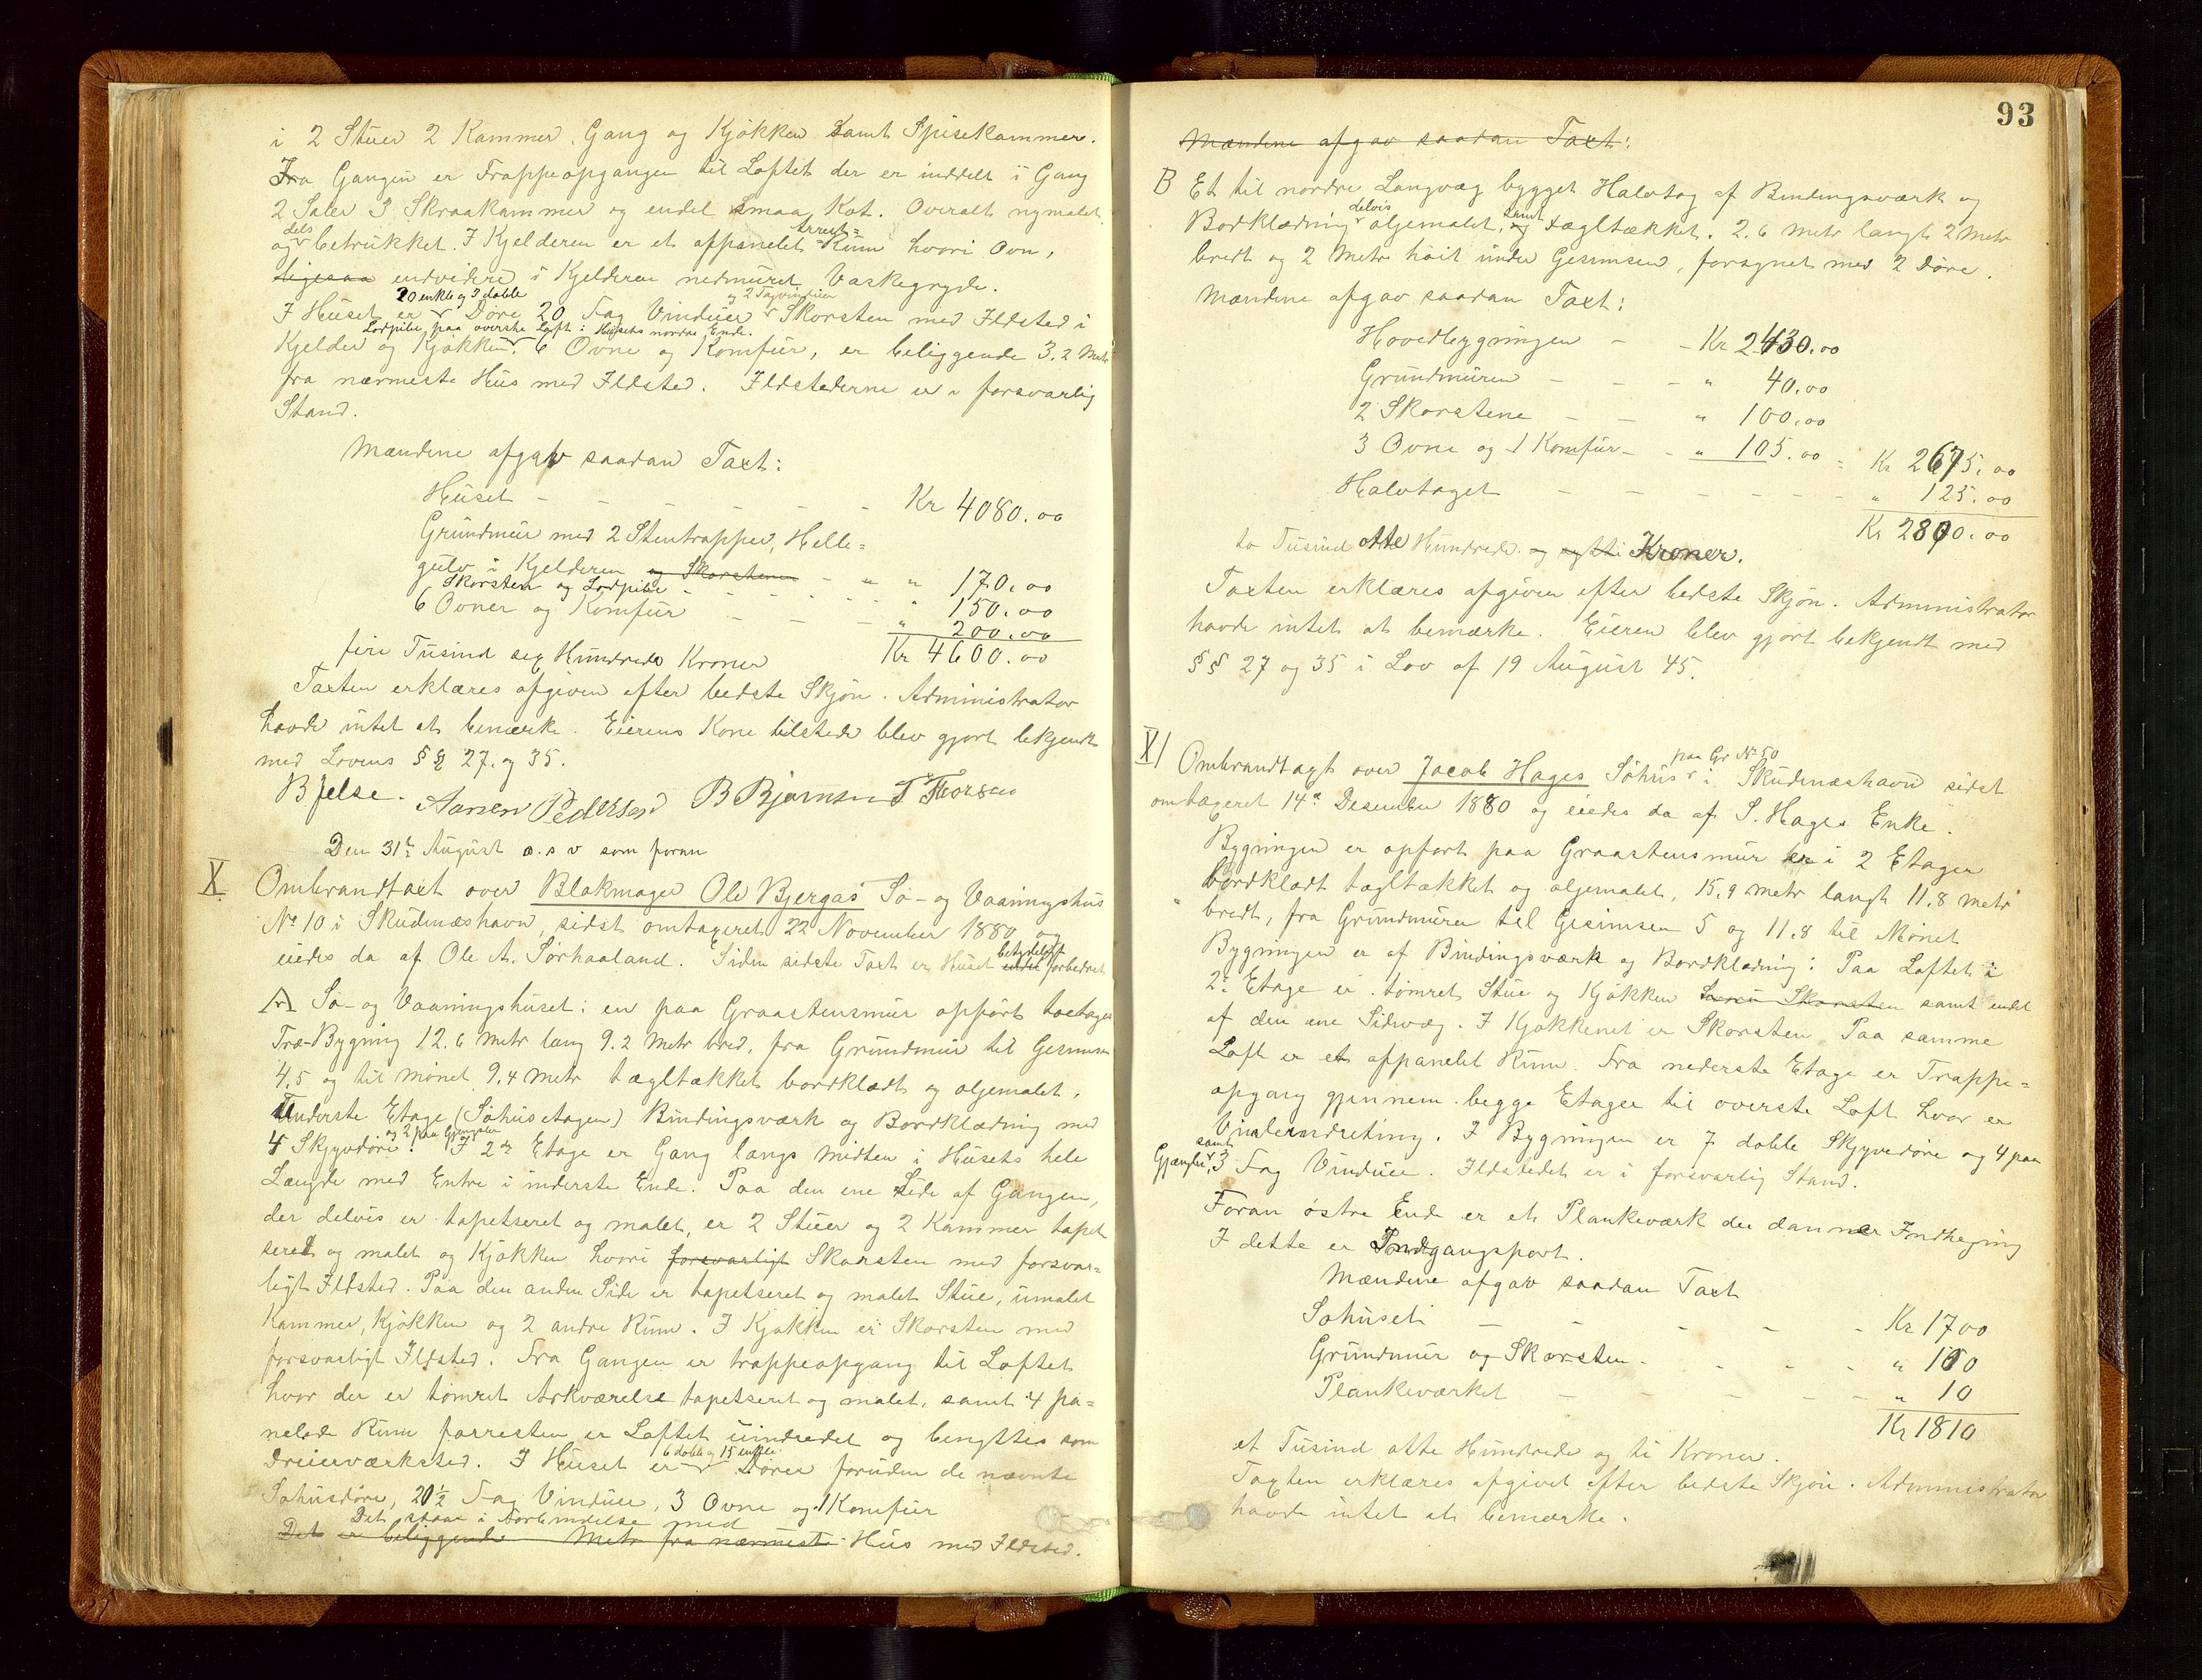 i 2 Stuer 2 Kammer, Gang og Kjökken samt Spisekammer.
Fra Gangen er Trappeopgangen til Loftet der er inddelt i Gang
2 Saler 3 Skraakammer og endel smaa Kot. Overalt nymalet
og dels betrukket. I Kjelderen er et oppanelet Rum hvori Ovn,
ligesaa endvidere i Kjelderen nedmuret Vaskegryde.
20 enkle og 3 doble og 2 Tagvinduer
I Huset er Döre 20 Fag Vinduer Skorsten med Ildsted i
Lodpibe paa överste Loft i Husets nordre Ende.
Kjelder og Kjökken. 6 Ovne og Komfur, er beliggende 3.2 Metr
fra nærmeste Hus med Ildsted. Ildstederne er i forsvarlig
Stand.
Mændene afgav saadan Taxt:
Huset - - - - - Kr 4080.00
Grundmur med 2 Stentrapper, Helle=
gulv i Kjelderen og Skorstenen - " " 170.00
Skorsten og Lodpibe - - - - " 150.00
6 Ovner og Komfur - - - " 200.00
fire Tusind sex Hundrede Kroner Kr 4600.00
Taxten erklæres afgiven efter bedste Skjön. Administrator
havde intet at bemærke. Eierens Kone tilstede blev gjort bekjendt
med Lovens §§ 27. og 35.
B Jelse. Aanen Pedersen B Bjørnsen T Thorsen
Den 31te August o.s v som foran
X Ombrandtaxt over Blokmager Ole Bjergas Sö- og Vaaningshus
No 10 i Skudesnæshavn, sidst omtaxeret 22 November 1880 og
eiedes da af Ole A. Sørhaaland. Siden sidste Taxt er Huset endel betydeligt forbedret
A Sö- og Vaaningshuset: en paa Graastensmur opfört toetages
Træ-Bygning 12.6 Metr lang 9.2 Metr bred, fra Grundmur til Gesimsen
4.5 og til Mönet 9.4 Metr tægltækket bordklædt og oljemalet.
Underste Etage (Söhusetagen) Bindingsværk og Bordklædning med
4 Skyvdöre og 2 paa Gjængsler. I 2den Etage er Gang langs Midten i Husets hele
Længde med Entre i inderste Ende. Paa den ene Side af Gangen,
der delvis er tapetseret og malet, er 2 Stuer og 2 Kammer tapet
seret og malet og Kjökken hvori forsvarligt Skorsten med forsvar=
ligt Ildsted. Paa den anden Side er tapetseret og malet Stue, umalet
Kammer, Kjökken og 2 andre Rum. I Kjökken er Skorsten med
forsvarligt Ildsted. Fra Gangen er trappeopgang til Loftet
hvor der er tömret Arkværelse tapetseret og malet, samt 4 pa=
nelede Rum forresten er Loftet uindredet og benyttes som
Dreierværksted. I Huset er 6 doble og 15 enkle Dörer foruden de nævnte
Söhusdöre, 20½ Fag Vinduer, 3 Ovne og 1 Komfur
Det staar i Forbindelse med
Det er beliggende Metr fra nærmeste Hus med Ildsted.
93
Mændene afgav saadan Taxt:
B Et til nordre Langvæg bygget Halvtag af Bindingsværk og
Bordklædning delvis oljemalet, og samt tægltækket. 2.6 Metr langt 2 Metr
bredt og 2 Metr höit under Gesimsen, forsynet med 2 Döre.
Mændene afgav saadan Taxt:
Hovedbygningen - - Kr 2430.00
Grundmuren - - - " 40.00
2 Skorstene - - " 100.00
3 Ovne og 1 Komfur - - " 105.00 = Kr 2675.00
Halvtaget - - - - - - " 125.00
Kr 2800.00
to Tusind otte Hundrede og Kroner.
Taxten erklæres afgiven efter bedste Skjön. Administrator
havde intet at bemærke. Eieren blev gjort bekjendt med
§§ 27 og 35 i Lov af 19 August 45.
XI Ombrandtaxt over Jacob Hages Söhus paa Gr No 50 i Skudesnæshavn sidst
omtaxeret 14de Desember 1880 og eiedes da af S. Hages Enke.
Bygningen er opfört paa Graastensmur i 2 Etager
bordklædt tægltækket og oljemalet, 15.9 metr langt 11.8 metr
bredt, fra Grundmuren til Gesimsen 5 og 11.8 til Mönet
Bygningen er af Bindingsværk og Bordklædning: Paa Loftet i
2den Etage er tömret Stue og Kjökken samt Skorsten samt endel
af den ene Sidevæg. I Kjökkenet er Skorsten Paa samme
Loft er et oppanelet Rum. Fra nederste Etage er Trappe=
opgang gjennem begge Etager til överste Loft hvor er
Vinderindretning. I Bygningen er 7 doble Skyvedöre og 4 paa
Gjængsler, samt 3 Fag Vinduer. Ildstedet er i forsvarlig Stand.
Foran östre Ende er et Plankeværk der danner Indhegning
I dette er Indgangsport.
Mændene afgav saadan Taxt
Söhuset - - - - - Kr 1700
Grundmur og Skorsten - - - - " 100
Plankeværket - - - - - " 10
Kr 1810
et Tusind otte Hundrede og ti Kroner.
Taxten erklæres afgivet efter bedste Skjön. Administrator
havde intet at bemærke.